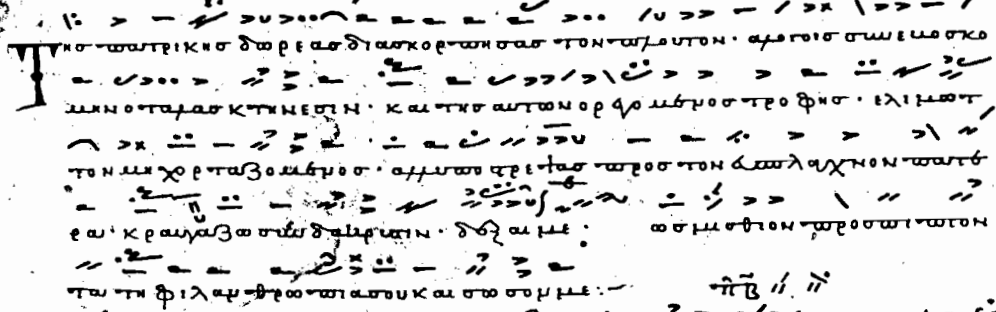 Της πατρικης δωρεας διασκορπησας τον πλουτον · αλογοις συνεβοσκο
μην ο ταλας κτηνεσιν · και της αυτων ορεγομενος τροφης · ελιμωτ
τον μη χορταζομενος · αλλ υποστρεψας προς τον ευσπλαχνον πατε
ρα · κραυγαζω συν δακρυσιν · δεξαι με · ως μισθιον προσπιπτον
τα τη φιλανθρωπια σου και σωσον με :-